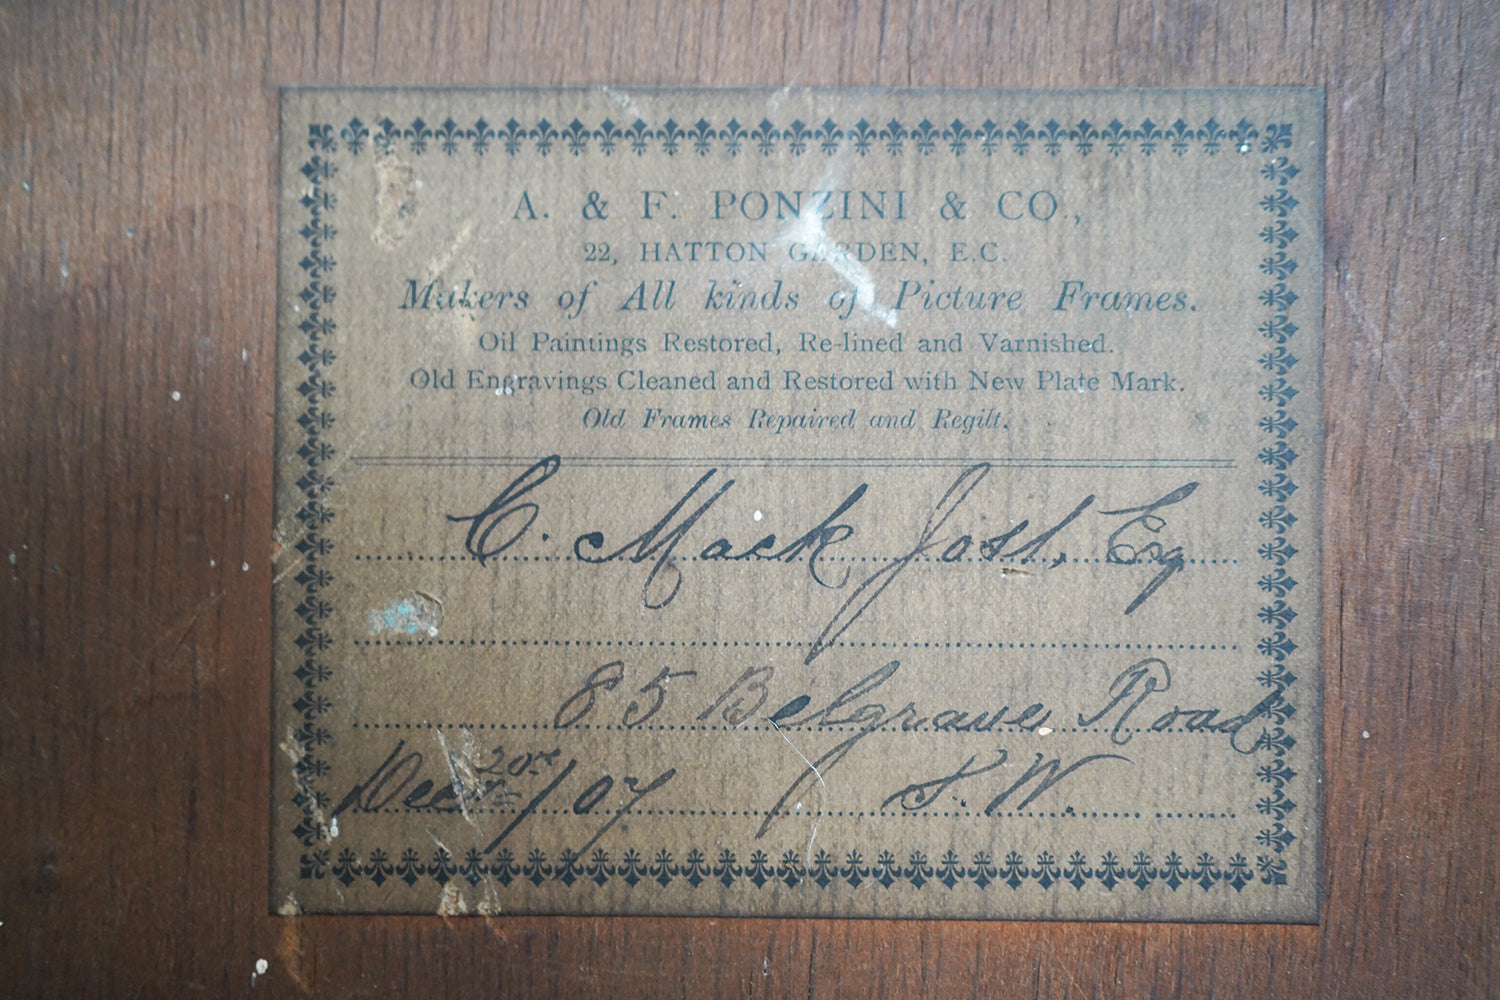 A. & F. PONZINI & CO.,
22, HATTON GARDEN, E.C.
Makers of All kinds of Picture Frames.
Oil Paintings Restored, Re-lined and Varnished.
Old Engravings Cleaned and Restored with New Plate Mark.
Old Frames Repaired and Regilt.
C. Mack Jost, Esq
85 Belgrave Road
Dec 20th/07 S.W.